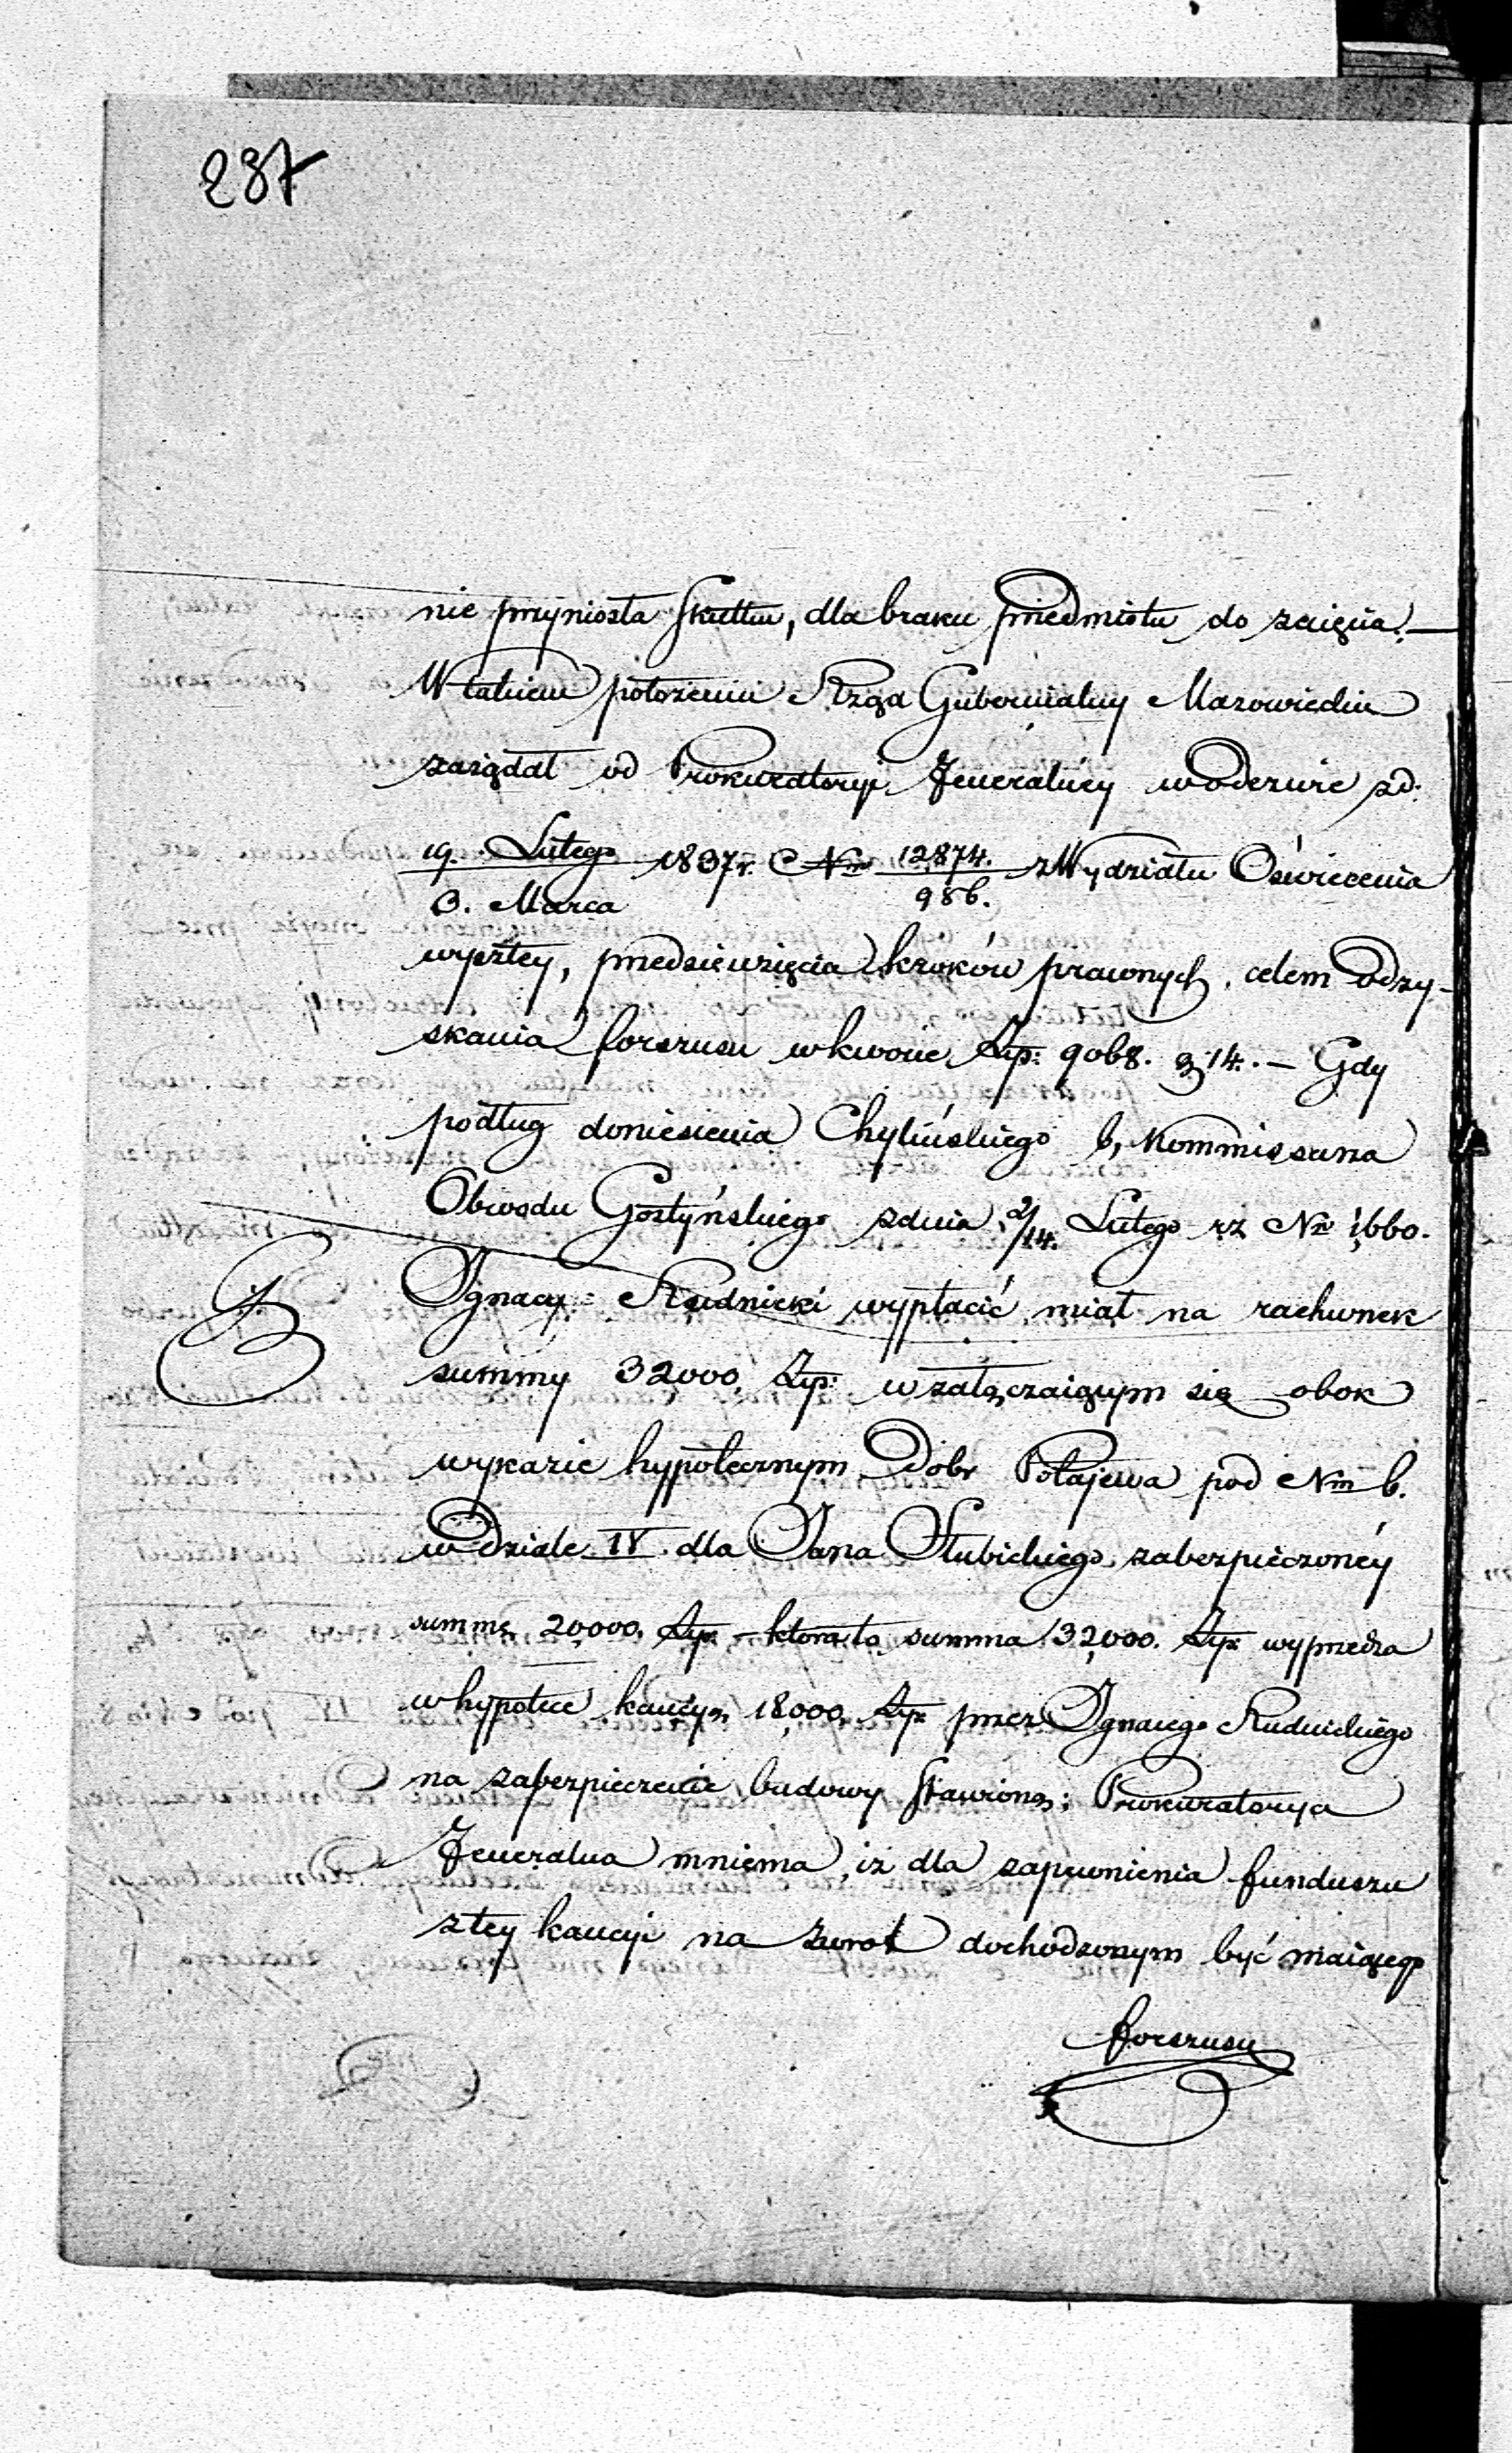 287
nie przyniosła skutku, dla braku przedmiotu do zaięcia. —
W takiem położeniu Rząd Gubernialny Mazowiecki
zażądał od Prokuratoryi Jeneralnéy w odezwie z d:
19. Lutego / 3. Marca 1837 r. Nro 12,874. / 986. z Wydziału Oświecenia
wyszłey, przedsięwzięcia kroków prawnych, celem odzy-
skania forszusu w kwocie Złp: 9068. gr 14. — Gdy
podług doniesienia Chylińskiego b, Kommissarza
Obwodu Gostyńskiego z dnia 2/14. Lutego r z Nro 1,660.
Ignacy Rudnicki wypłacić miał na rachunek
summy 32,000 Złp: w załączaiącym się obok
wykazie hypotecznym Dobr Połajewa pod Nrm 6.
w Dziale IV dla Jana Słubickiego zabezpieczonéy
summę 20,000, Złp: – która to summa 32,000. Złp: wyprzedza
w hypotece kaucyą 18,000, Złp: przez Ignacego Rudnickiego
na zabezpieczenie budowy stawioną; Prokuratorya
Jeneralna mniema, iż dla zapewnienia funduszu
z téy kaucyi na zwrot dochodzonym być maiącego
forszusu